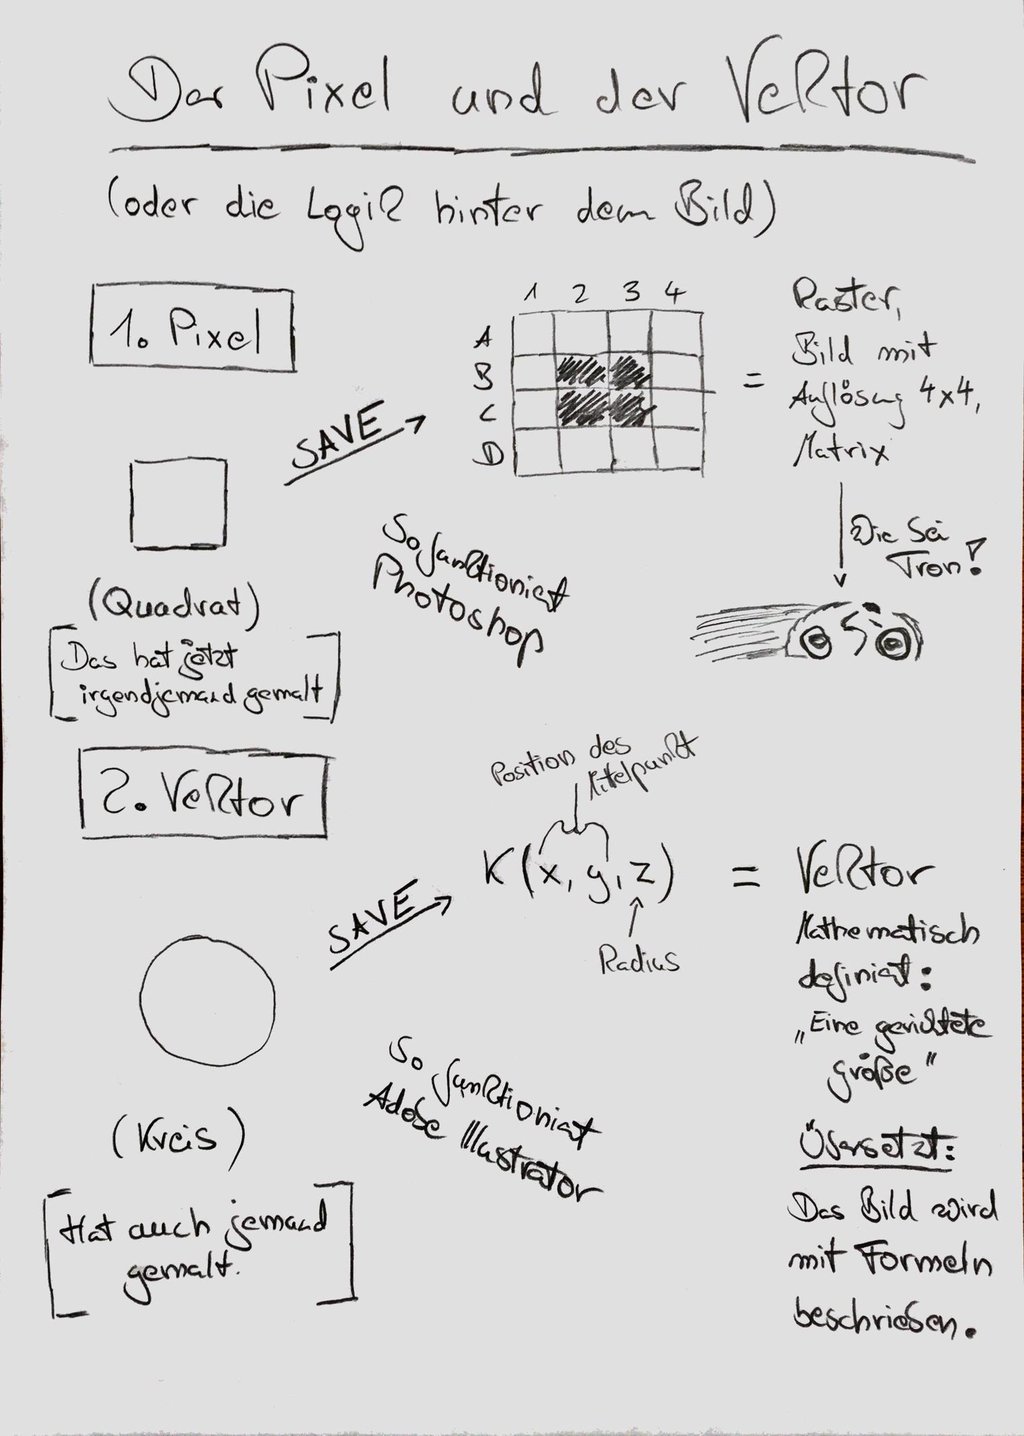 Der Pixel und der Vektor
(oder die Logik hinter dem Bild)
1. Pixel
SAVE
1 2 3 4
A
B
C
D
=
Raster,
Bild mit
Auflösung 4x4,
Matrix
(Quadrat)
[Das hat jetzt
irgendjemand gemalt]
So funktioniert
Photoshop
Wie bei
Tron!
2. Vektor
SAVE
Position des
Mittelpunkt
K(x, y, z)
Radius
= Vektor
Mathematisch
definiert:
„Eine gerichtete
größe"
(Kreis)
[Hat auch jemand
gemalt.]
So funktioniert
Adobe Illustrator
Übersetzt:
Das Bild wird
mit Formeln
beschrieben.